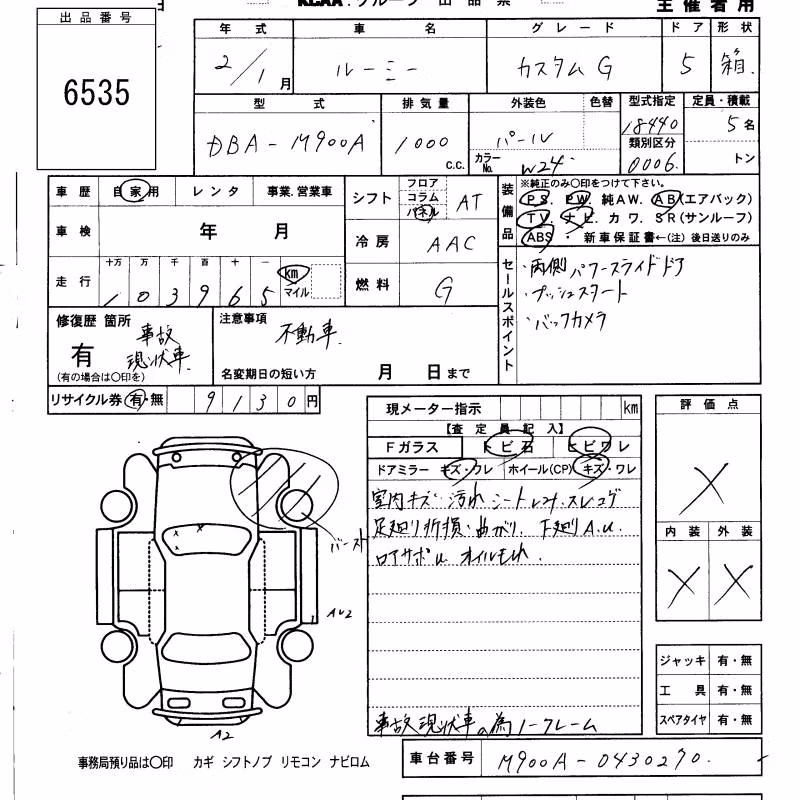 KCAA・グループ 出品票
主催者用
出品番号
6535
年式 車名 グレード ドア 形状
2/1月 ルーミー カスタムG 5 箱
型式 排気量 外装色 色替 型式指定 定員・積載
DBA-M900A 1000 c.c. パール 18440 5名
カラーNo. W24 類別区分 0006 トン
車歴 自家用 レンタ 事業.営業車
車検 年 月
走行 十万 万 千 百 十 一
103965 km マイル
シフト フロア コラム パネル AT
冷房 AAC
燃料 G
装備品 ※純正のみ〇印をつけて下さい。
PS. PW. 純AW. AB(エアバック)
TV. ナビ. カワ. SR(サンルーフ)
ABS ・ 新車保証書←(注) 後日送りのみ
セールスポイント
・両側パワースライドドア
・プッシュスタート
・バックカメラ
修復歴 箇所
有 事故現状車.
(有の場合は〇印を)
注意事項 不動車.
名変期日の短い方 月 日まで
リサイクル券 有・無 9130円
現メーター指示 km
【査定員記入】
Fガラス トビ石 ヒビワレ
ドアミラー キズ・ワレ ホイール(CP) キズ・ワレ
室内キズ・汚れ シートレコナ・スレコゲ
足廻り折損・曲がり. 下廻りA.U.
ロアサポU オイルモレ.
事故現状車の為ノークレーム
評価点
X
内装 外装
X X
バースト
AU2
A2
ジャッキ 有・無
工具 有・無
スペアタイヤ 有・無
事務局預り品は〇印 カギ シフトノブ リモコン ナビロム
車台番号 M900A-0430270.